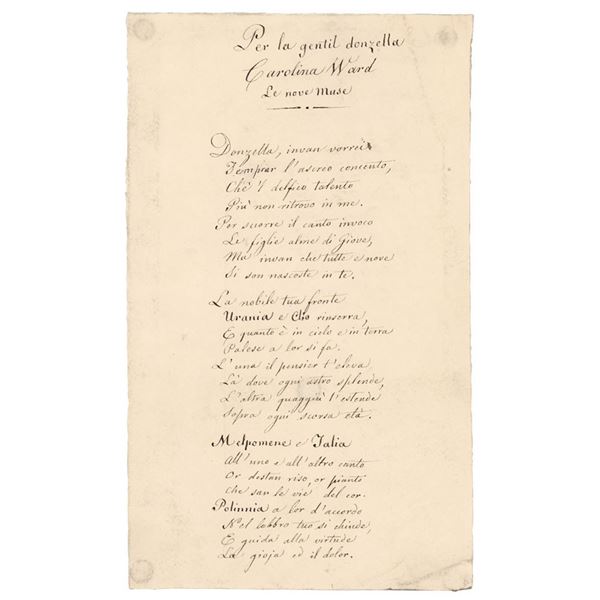 Per la gentil donzella
Carolina Ward
Le nove Muse
Donzella, invan vorrei
Temprar l'ascreo concento,
Chè 'l delfico talento
Più non ritrovo in me.
Per sciorre il canto invoco
Le figlie alme di Giove,
Ma invan che tutte e nove
Si son nascoste in te.
La nobile tua fronte
Urania e Clio rinserra,
E quanto è in cielo e in terra
Palese a lor si fa.
L'una il pensier t'eleva
Là dove ogni astro splende,
L'altra quaggiù l'estende
Sopra ogni scorsa età.
Melpomene e Talia
All'uno e all'altro canto
Or destan riso, or pianto
Che san le vie del cor.
Polinnia a lor d'accordo
Nel labbro tuo si chiude,
E guida alla virtude
La gioja ed il dolor.